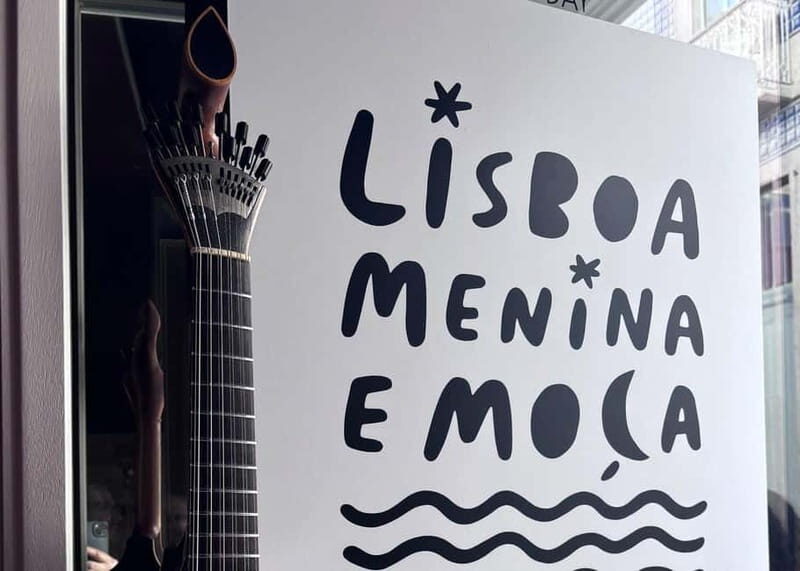 DAY
LISBOA
MENINA
E MOÇA